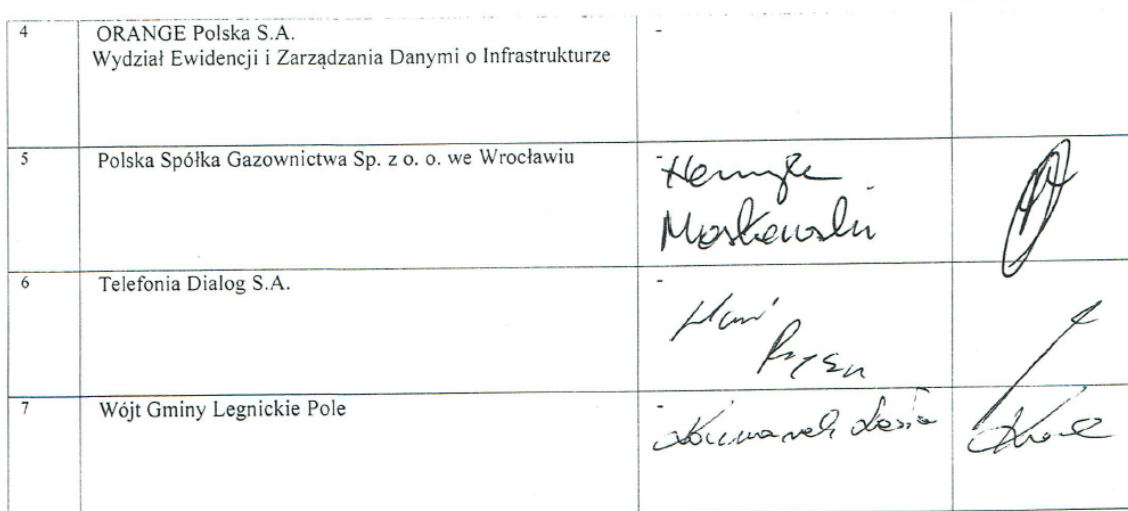 4 ORANGE Polska S.A. -
Wydział Ewidencji i Zarządzania Danymi o Infrastrukturze
5 Polska Spółka Gazownictwa Sp. z o. o. we Wrocławiu -
Henryk
Moskewski
6 Telefonia Dialog S.A. -
7 Wójt Gminy Legnickie Pole -